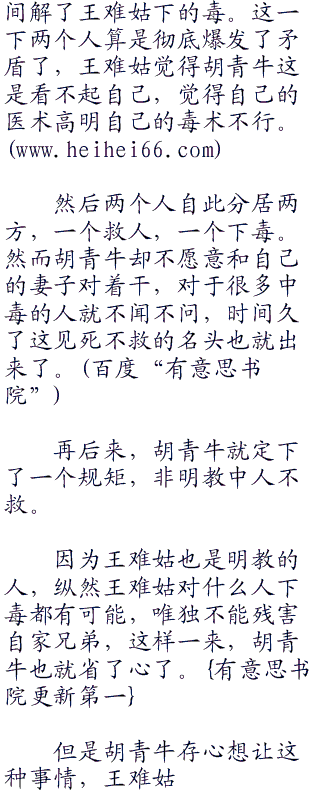 间解了王难姑下的毒。这一
下两个人算是彻底爆发了矛
盾了，王难姑觉得胡青牛这
是看不起自己，觉得自己的
医术高明自己的毒术不行。
(www.heihei66.com)
然后两个人自此分居两
方，一个救人，一个下毒。
然而胡青牛却不愿意和自己
的妻子对着干，对于很多中
毒的人就不闻不问，时间久
了这见死不救的名头也就出
来了。(百度“有意思书
院”)
再后来，胡青牛就定下
了一个规矩，非明教中人不
救。
因为王难姑也是明教的
人，纵然王难姑对什么人下
毒都有可能，唯独不能残害
自家兄弟，这样一来，胡青
牛也就省了心了。{有意思书
院更新第一}
但是胡青牛存心想让这
种事情，王难姑